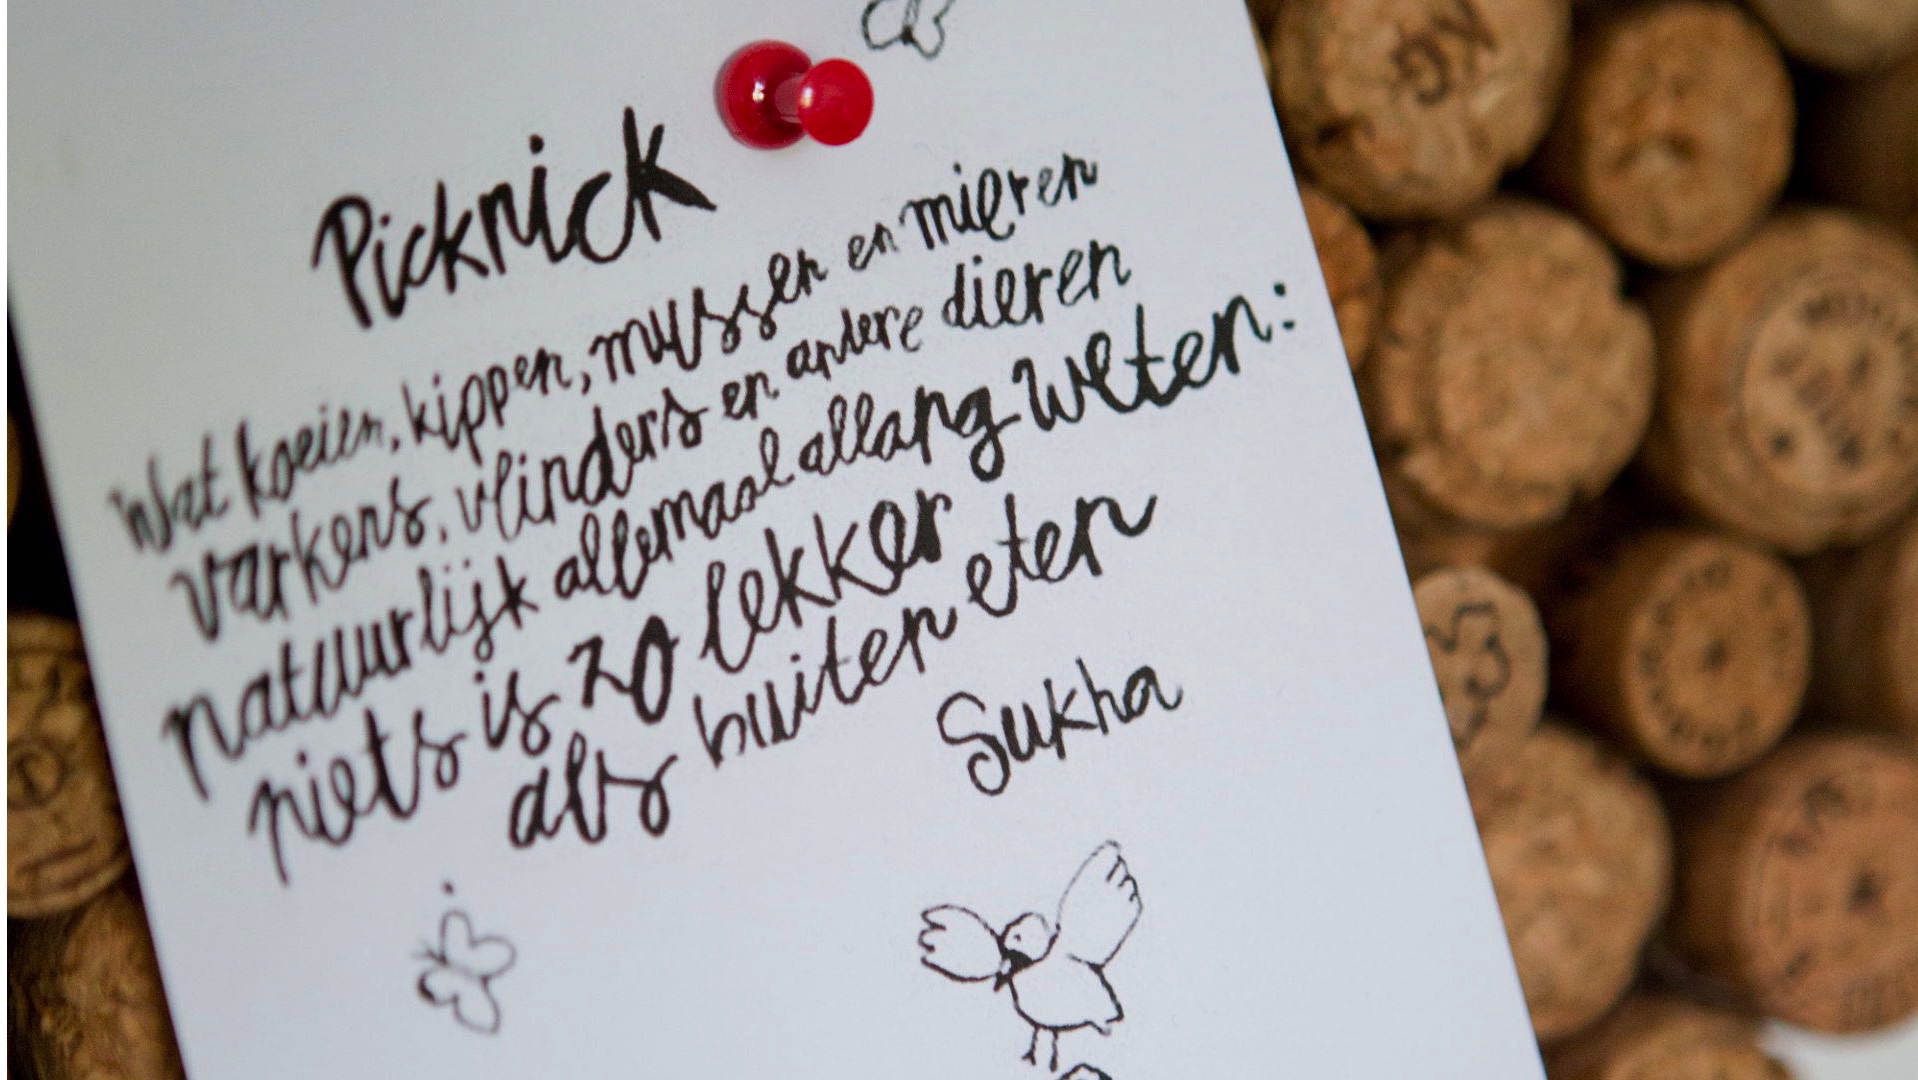 Picknick
Wat koeien, kippen, mussen en mieren
varkens, vlinders en andere dieren
natuurlijk allemaal allang weten:
niets is zo lekker
als buiten eten
Sukha